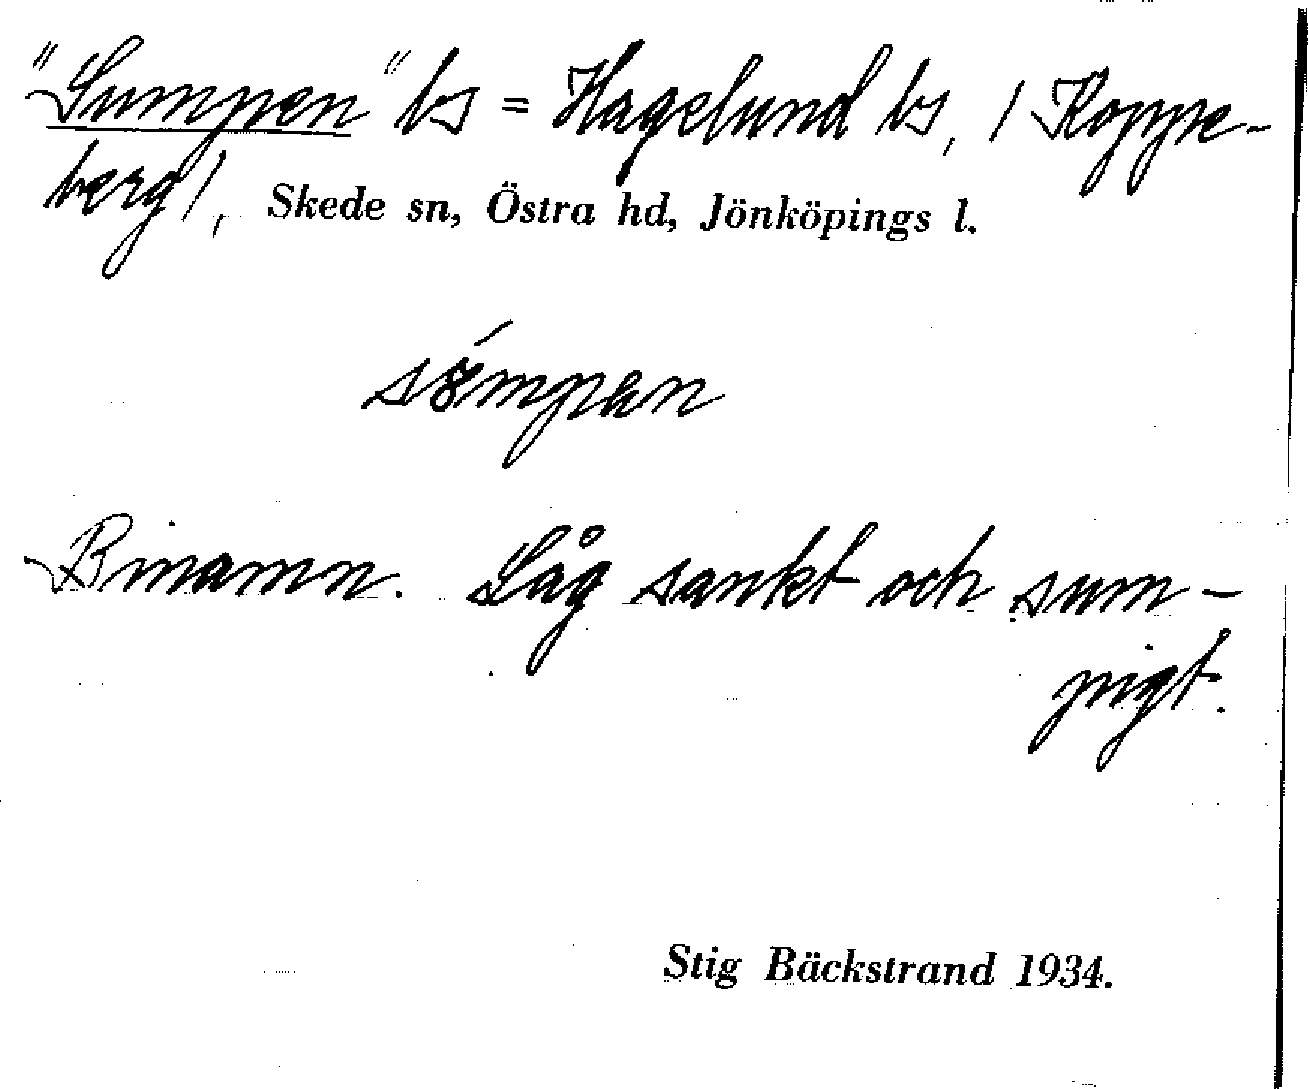 "Sumpen" bs = Hagelund bs, / Koppe-
berg/, Skede sn, Östra hd, Jönköpings l.
sömpen
Binamn. Låg sankt och sum-
pigt.
Stig Bäckstrand 1934.